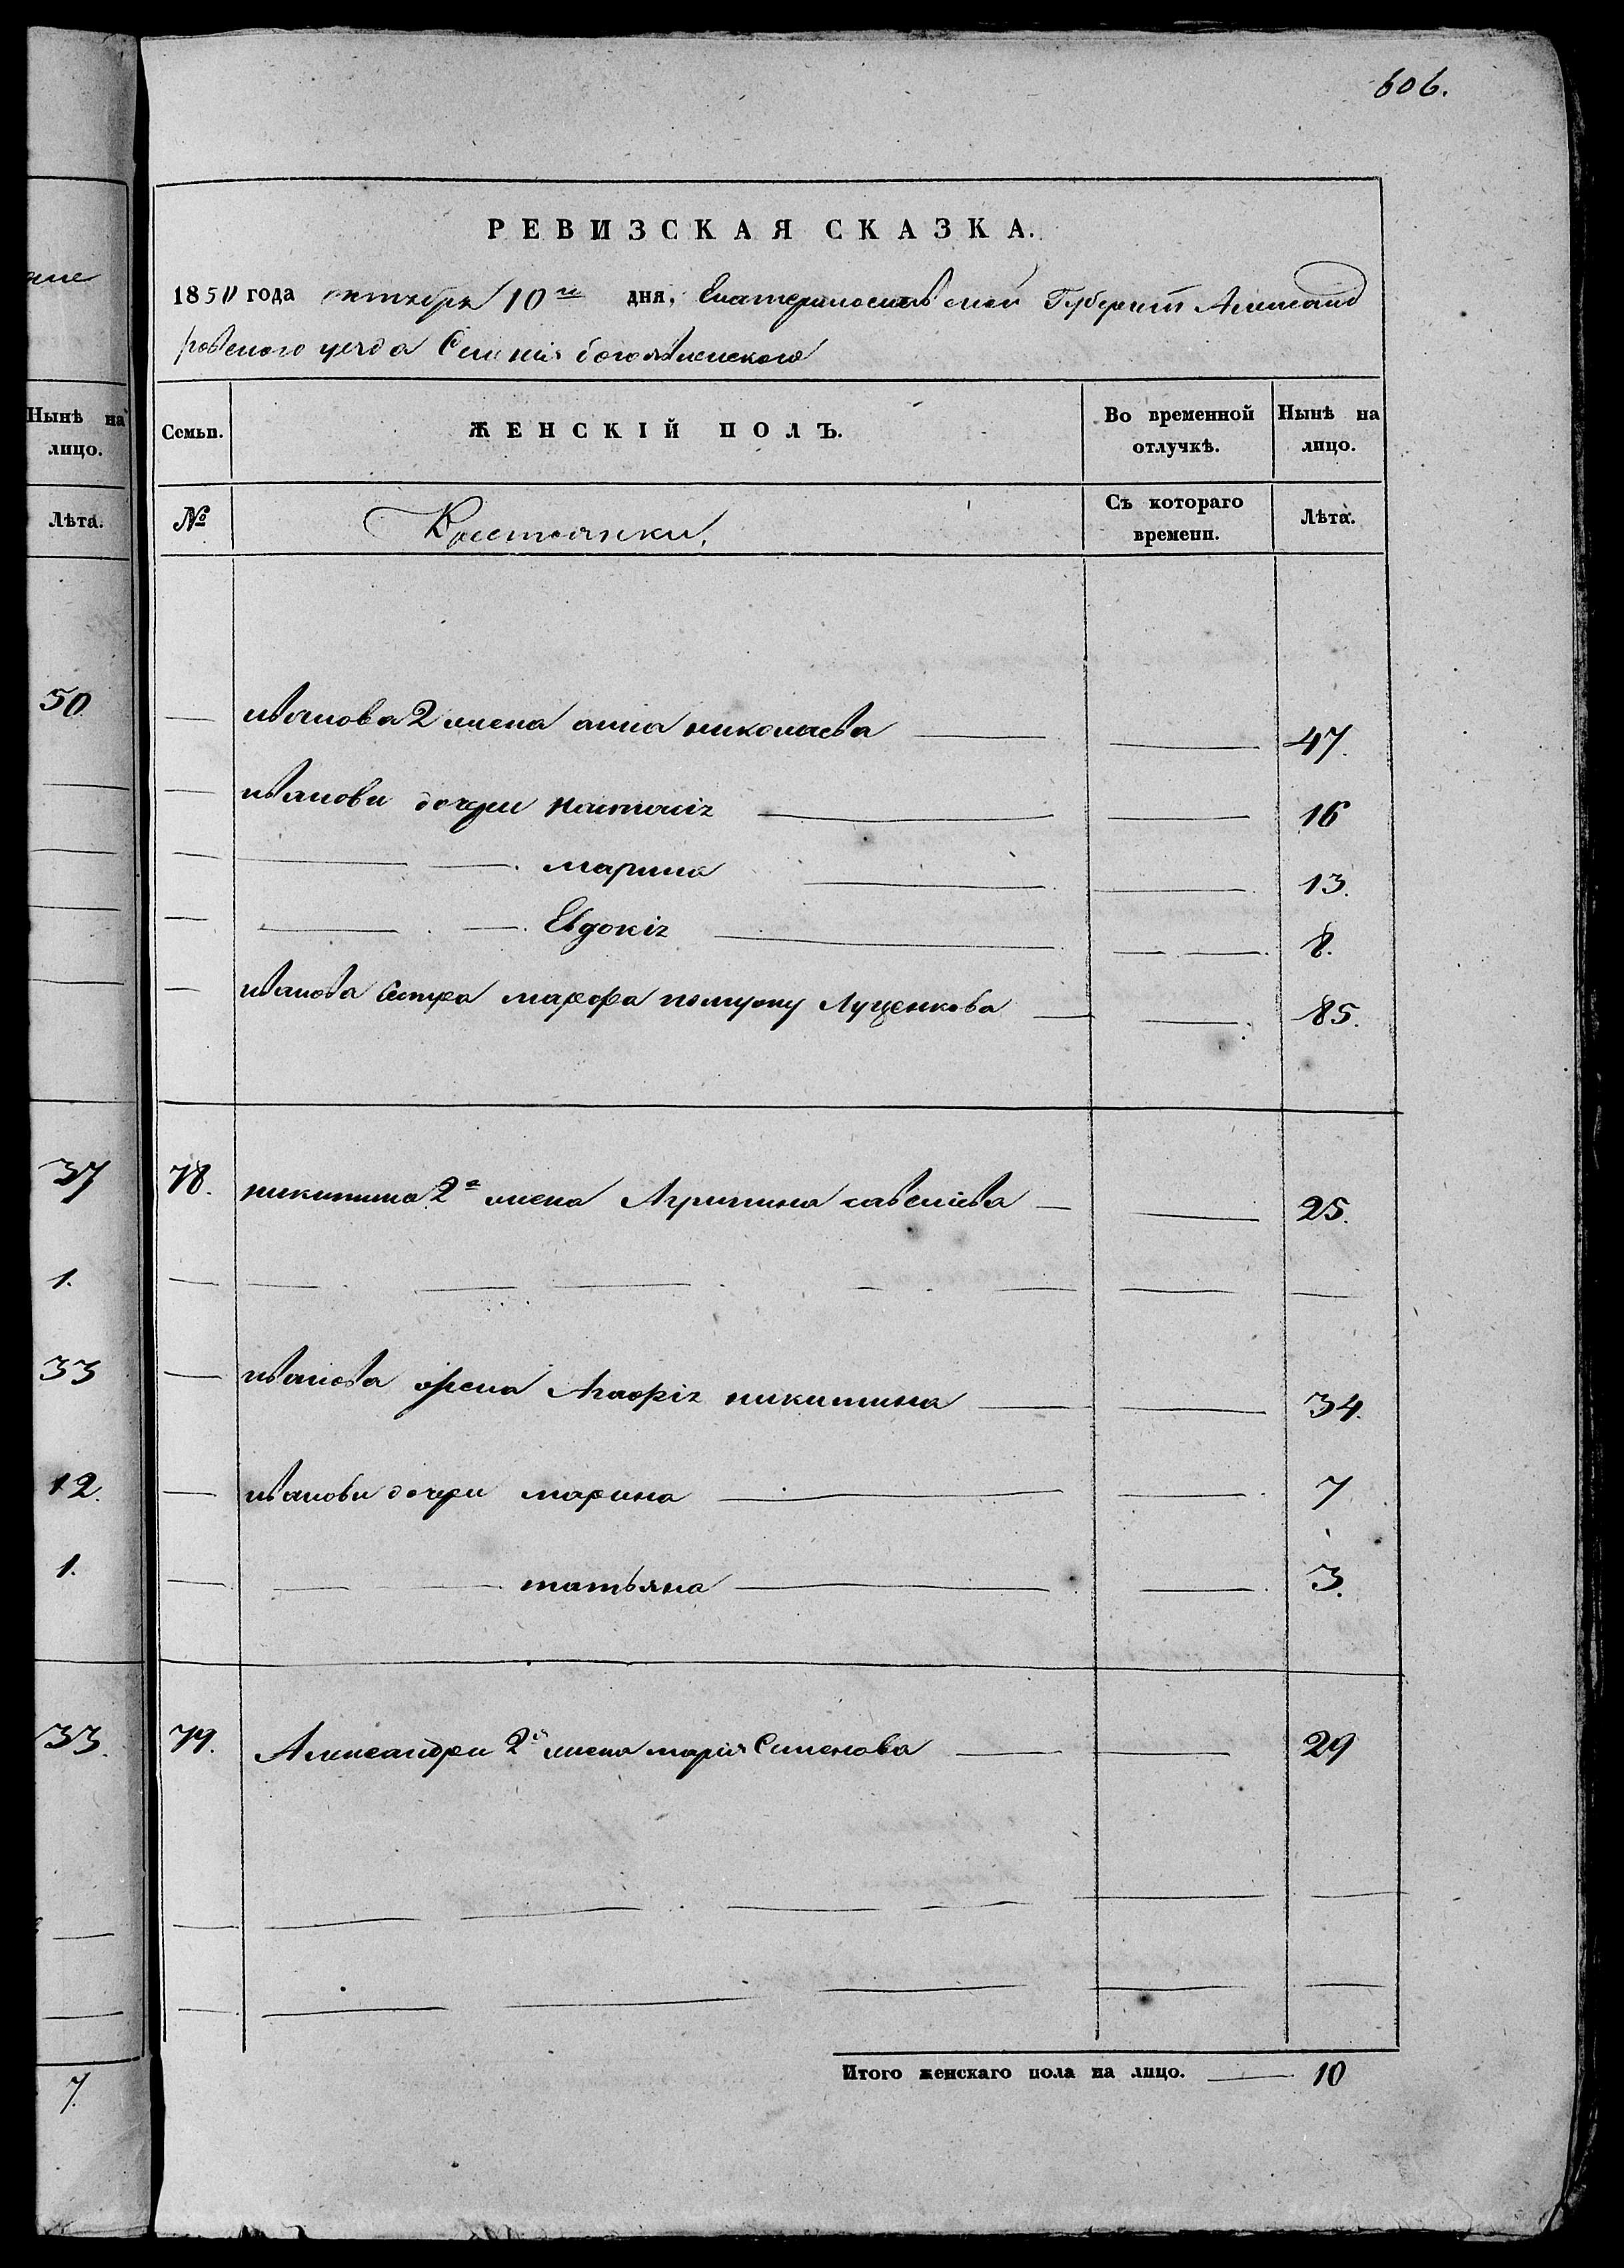 606.
РЕВИЗСКАЯ СКАЗКА.
1850 года октября 10го дня, Екатеринославской Губерніи Александ
ровского уезда Селенія богоявленского
Нынѣ на лицо.
Лѣта.
50
37
1.
33
12.
1.
33.
7.
Семьи. ЖЕНСКІЙ ПОЛЪ. Во временной отлучкѣ. Нынѣ на лицо.
№ Крестьянки, Съ котораго времени. Лѣта.
— иванова 2 жена анна николаева — — 47.
— ивановы дочери настасія — — 16
— — — марина — — 13.
— — — Евдокія — — 8.
— иванова сестра марфа Луценкова — — 85.
78. никитина 2а жена Агрипина савелиева — — 25.
— иванова жена Агафія никитина — — 34.
— ивановы дочери марина — — 7
— — — татьяна — — 3.
79. Александры 2я жена марія Семенова — — 29
Итого женскаго пола на лицо. — 10